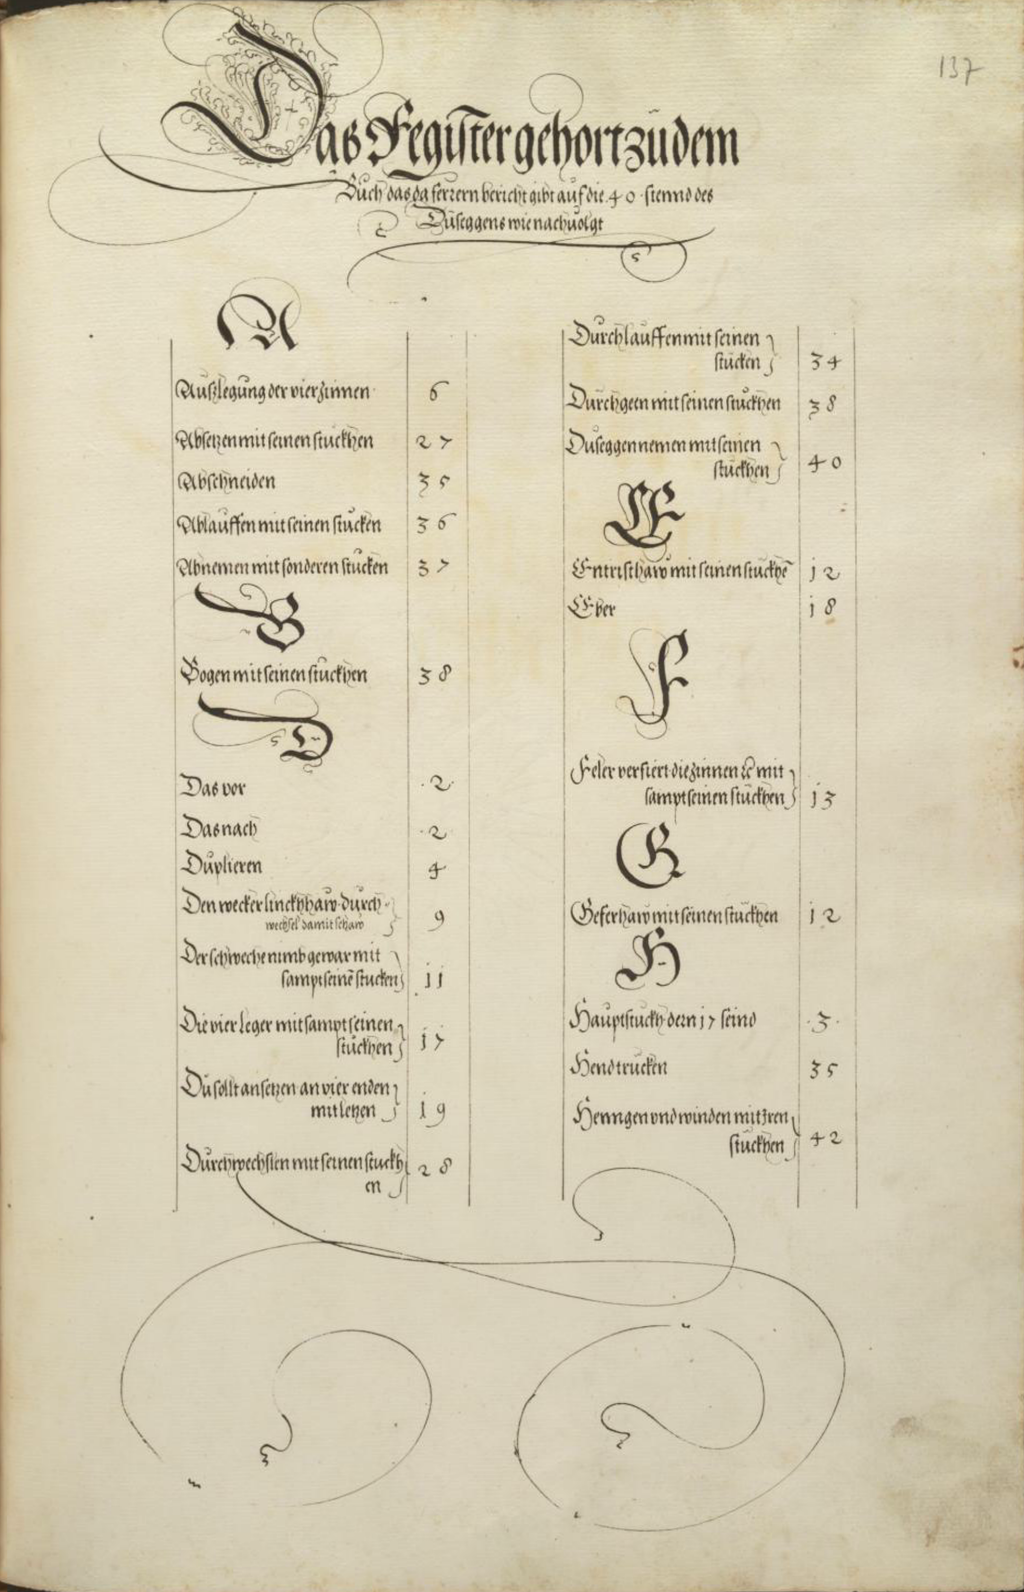 137
Das Register gehort zŭ dem
Bŭch das da ferrern bericht gibt aŭf die 40 stennd des
Dŭseggens wie nachŭolgt
A
Aŭszlegŭng der vier zinnen 6
Absetzen mit seinen stŭckhen 27
Abschneiden 35
Ablaŭffen mit seinen stŭcken 36
Abnemen mit sonderen stŭcken 37
B
Bogen mit seinen stŭckhen 38
D
Das vor ·2·
Das nach ·2
Dŭplieren 4
Den wecker linckhhaw dŭrch
wechsel damit schaw 9
Der schweche nimb gewar mit
sampt seinē stucken 11
Die vier leger mit sampt seinen
stŭckhen 17
Dŭ sollt ansetzen an vier enden
mit letzen 19
Dŭrchwechslen mit seinen stŭckh
en 28
Dŭrchlaŭffen mit seinen
stŭcken 34
Dŭrchgeen mit seinen stŭckhen 38
Dŭseggen nemen mit seinen
stŭckhen 40
E
Entristhaw mit seinen stŭckhē 12
Eber 18
F
Feler versiert die zinnen &c mit
sampt seinen stŭckhen 13
G
Geferhaw mit seinen stŭckhen 12
H
Haŭptstŭckh dern 17 seind ·3·
Hendtrŭcken 35
Henngen vnd winden mit iren
stŭckhen 42